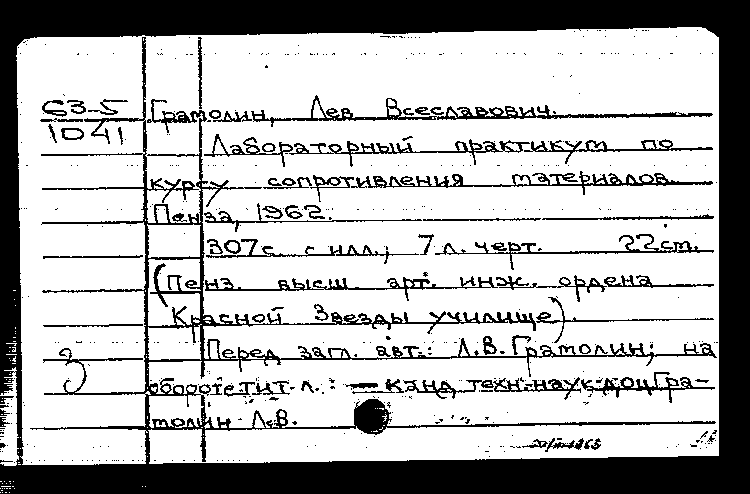 63-5
1041
Грамолин, Лев Всеславович.
Лабораторный практикум по
курсу сопротивления материалов.
Пенза, 1962.
307 с. с илл.; 7 л. черт. 22 см.
(Пенз. высш. арт. инж. ордена
Красной Звезды училище).
Перед загл. авт.: Л.В. Грамолин; на
З
обороте тит. л.: — канд. техн. наук доц Гра-
молин Л.В.